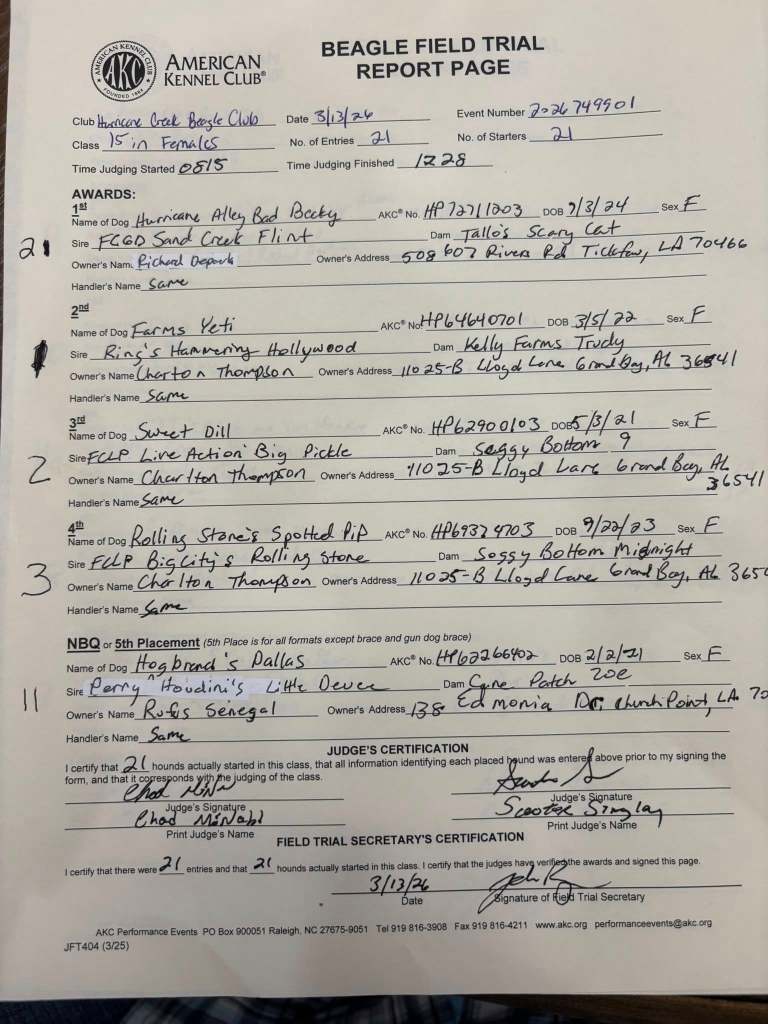 AMERICAN KENNEL CLUB FOUNDED 1884
AKC
AMERICAN
KENNEL CLUB®
BEAGLE FIELD TRIAL
REPORT PAGE
Club Hurricane Creek Beagle Club Date 3/13/26 Event Number 2026749901
Class 15 in Females No. of Entries 21 No. of Starters 21
Time Judging Started 0815 Time Judging Finished 1228
AWARDS:
1st
Name of Dog Hurricane Alley Bad Becky AKC® No. HP72711203 DOB 9/3/24 Sex F
21 Sire FCGD Sand Creek Flint Dam Tallo's Scary Cat
Owner's Nam. Richard Owner's Address 508 607 Rivers Rd Tickfaw, LA 70466
Handler's Name Same
2nd
Name of Dog Farms Yeti AKC® No HP64640701 DOB 3/5/22 Sex F
1 Sire Ring's Hammering Hollywood Dam Kelly Farms Trudy
Owner's Name Charton Thompson Owner's Address 11025-B Lloyd Lane Grand Bay, AL 36541
Handler's Name Same
3rd
Name of Dog Sweet Dill AKC® No. HP62900103 DOB 5/3/21 Sex F
2 Sire FCLP Live Action Big Pickle Dam Soggy Bottom 9
Owner's Name Charlton Thompson Owner's Address 11025-B Lloyd Lane Grand Bay, AL
36541
Handler's Name Same
4th
Name of Dog Rolling Stone's Spotted Pip AKC® No. HP69324703 DOB 9/22/23 Sex F
3 Sire FCLP Big City's Rolling Stone Dam Soggy Bottom Midnight
Owner's Name Charlton Thompson Owner's Address 11025-B Lloyd Lane Grand Bay, AL 365
Handler's Name Same
NBQ or 5th Placement (5th Place is for all formats except brace and gun dog brace)
Name of Dog Hogbranch's Dallas AKC® No. HP62266402 DOB 2/2/21 Sex F
11 Sire Perry Houdini's Little Deuce Dam Cane Patch Zoe
Owner's Name Rufus Senegal Owner's Address 138 Edmonia Dr. Church Point, LA. 70
Handler's Name Same
JUDGE'S CERTIFICATION
I certify that 21 hounds actually started in this class, that all information identifying each placed hound was entered above prior to my signing the
form, and that it corresponds with the judging of the class.
Judge's Signature Judge's Signature
Chad McNabb Scooter Singley
Print Judge's Name Print Judge's Name
FIELD TRIAL SECRETARY'S CERTIFICATION
I certify that there were 21 entries and that 21 hounds actually started in this class. I certify that the judges have verified the awards and signed this page.
3/13/26
Date Signature of Field Trial Secretary
AKC Performance Events PO Box 900051 Raleigh, NC 27675-9051 Tel 919 816-3908 Fax 919 816-4211 www.akc.org performanceevents@akc.org
JFT404 (3/25)